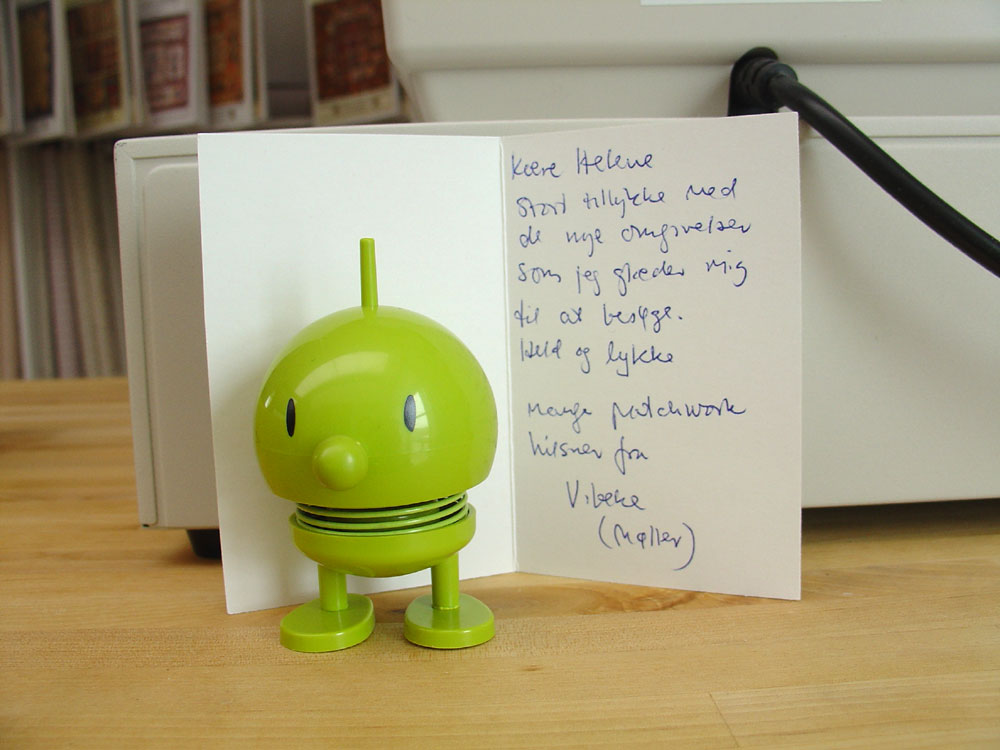 Kære Helene
Stort tillykke med
de nye omgivelser
som jeg glæder mig
til at besøge.
Held og lykke
Mange patchwork
hilsner fra
Vibeke
(Møller)